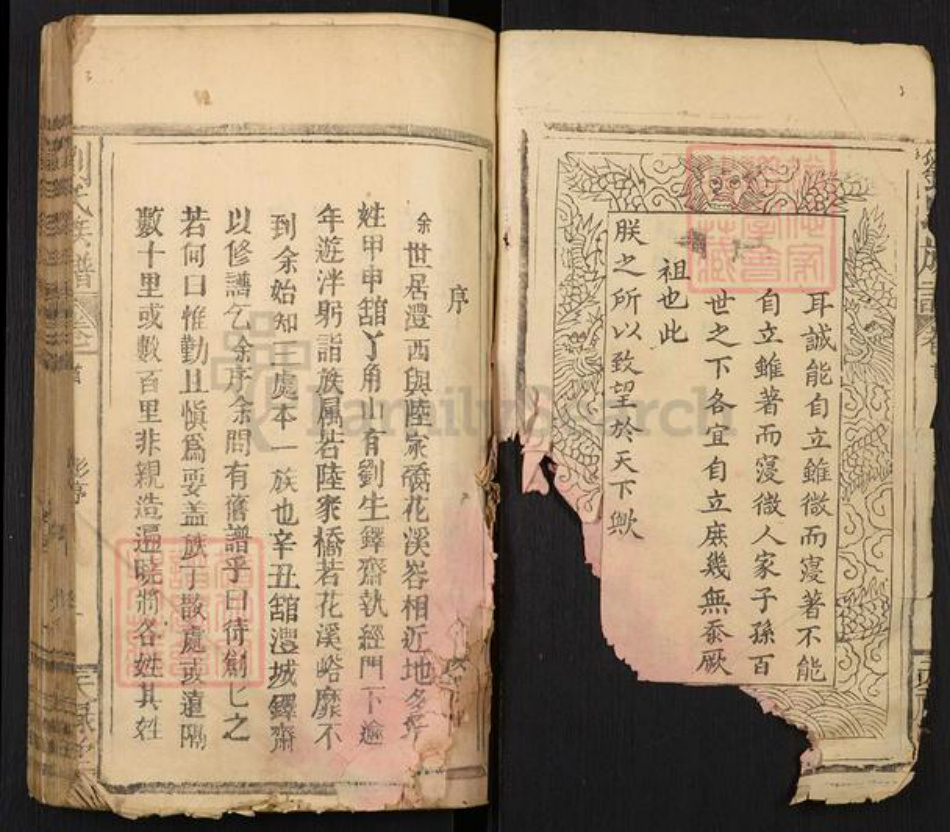 耳誠能自立雖微而寖著不能
自立雖著而寖微人家子孫百
世之下各宜自立庶幾無忝厥
祖也此
朕之所以致望於天下歟
序
余世居澧西與陸家橋花溪峪相近地多
姓甲申舘丫角山有劉生鐸齋執經門下逾
年遊泮躬詣族屬若陸家橋若花溪峪靡不
到余始知三處本一族也辛丑舘澧城鐸齋
以修譜乞余序余問有舊譜乎曰待創已之
若何曰惟勤且愼爲要盖族丁散處或遠隔
數十里或數百里非親造遍曉將各姓其姓
劉氏族譜
卷首
FamilySearch